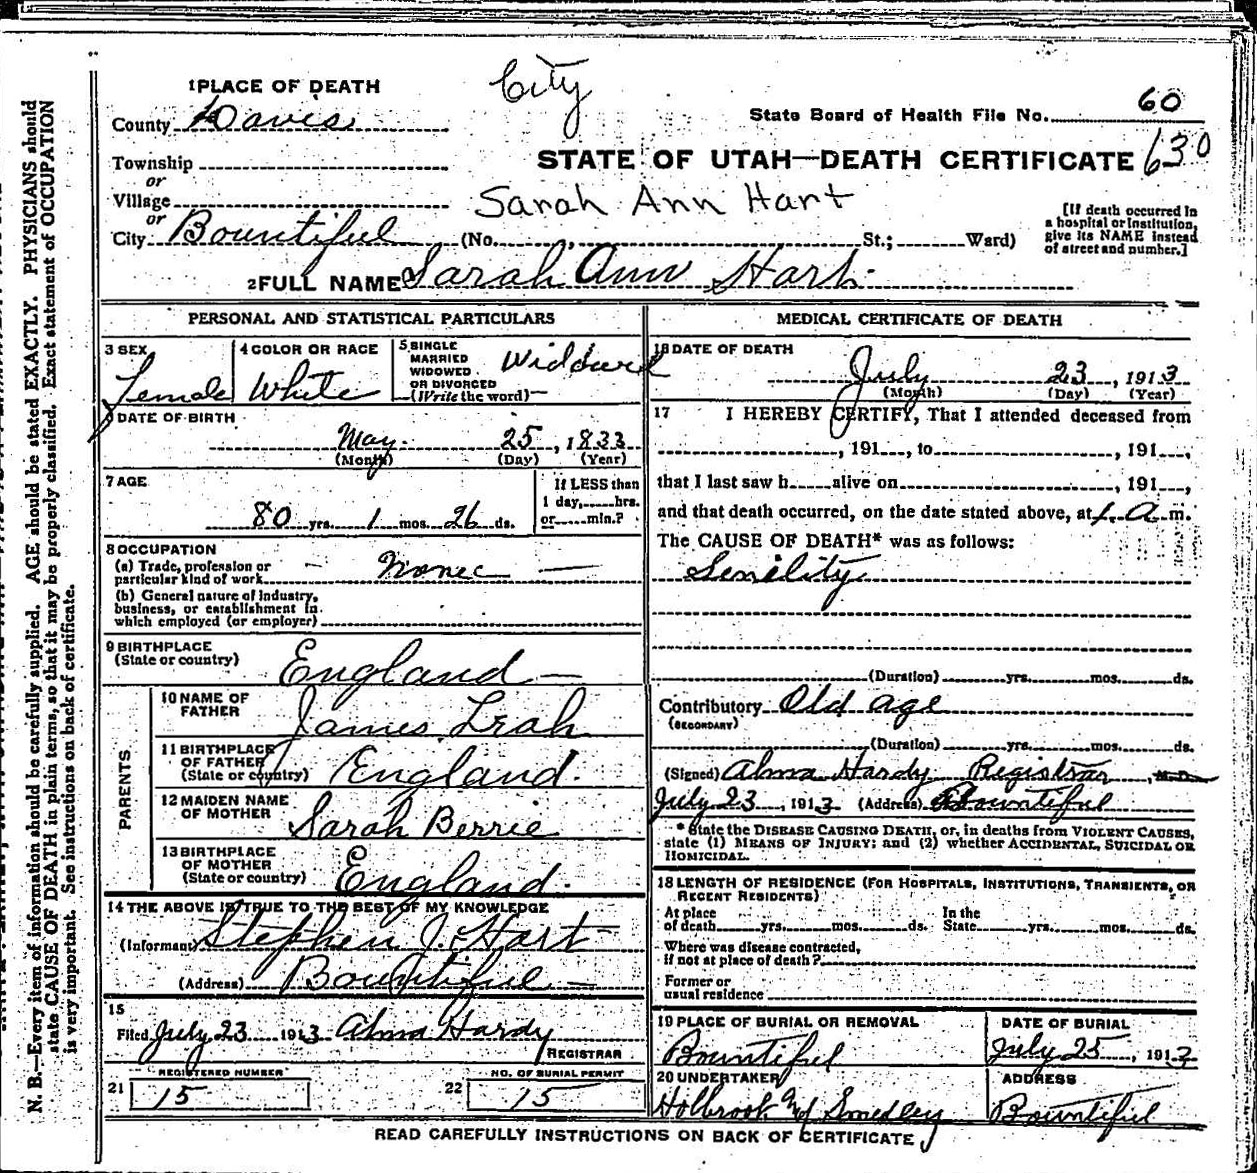 City
1 PLACE OF DEATH
County Davis
State Board of Health File No. 60
Township
or
STATE OF UTAH—DEATH CERTIFICATE 630
Village
or
Sarah Ann Hart
City Bountiful (No. , St.; Ward)
[If death occurred in
a hospital or institution,
give its NAME instead
of street and number.]
2 FULL NAME Sarah Ann Hart
PERSONAL AND STATISTICAL PARTICULARS
3 SEX
Female
4 COLOR OR RACE
White
5 SINGLE
MARRIED
WIDOWED
OR DIVORCED
(Write the word)
Widdwed
DATE OF BIRTH
May 25, 1833
(Month) (Day) (Year)
7 AGE
80 yrs. 1 mos. 26 ds.
If LESS than
1 day, hrs.
or min.?
8 OCCUPATION
(a) Trade, profession or
particular kind of work
(b) General nature of industry,
business, or establishment in
which employed (or employer)
9 BIRTHPLACE
(State or country)
England
PARENTS
10 NAME OF
FATHER
James Leah
11 BIRTHPLACE
OF FATHER
(State or country)
England.
12 MAIDEN NAME
OF MOTHER
Sarah Berrie
13 BIRTHPLACE
OF MOTHER
(State or country)
England.
14 THE ABOVE IS TRUE TO THE BEST OF MY KNOWLEDGE
(Informant) Stephen J. Hart
(Address) Bountiful
15
Filed July 23 1913 Alma Hardy
REGISTRAR
21 REGISTERED NUMBER
15
22 NO. OF BURIAL PERMIT
15
MEDICAL CERTIFICATE OF DEATH
16 DATE OF DEATH
July 23, 1913
(Month) (Day) (Year)
17 I HEREBY CERTIFY, That I attended deceased from
, 191 , to , 191 ,
that I last saw h alive on , 191 ,
and that death occurred, on the date stated above, at 1. a m.
The CAUSE OF DEATH* was as follows:
Senility
(Duration) yrs. mos. ds.
Contributory Old age
(SECONDARY)
(Duration) yrs. mos. ds.
(Signed) Alma Hardy Registrar, M.D.
July 23, 1913 (Address) Bountiful
* State the DISEASE CAUSING DEATH, or, in deaths from VIOLENT CAUSES,
state (1) MEANS OF INJURY; and (2) whether ACCIDENTAL, SUICIDAL OR
HOMICIDAL.
18 LENGTH OF RESIDENCE (FOR HOSPITALS, INSTITUTIONS, TRANSIENTS, OR
RECENT RESIDENTS)
At place
of death yrs. mos. ds.
In the
State yrs. mos. ds.
Where was disease contracted,
if not at place of death?
Former or
usual residence
19 PLACE OF BURIAL OR REMOVAL
Bountiful
DATE OF BURIAL
July 25, 1913
20 UNDERTAKER
Holbrook and Smedley
ADDRESS
Bountiful
READ CAREFULLY INSTRUCTIONS ON BACK OF CERTIFICATE
N. B.—Every item of information should be carefully supplied. AGE should be stated EXACTLY. PHYSICIANS should
state CAUSE OF DEATH in plain terms, so that it may be properly classified. Exact statement of OCCUPATION
is very important. See instructions on back of certificate.